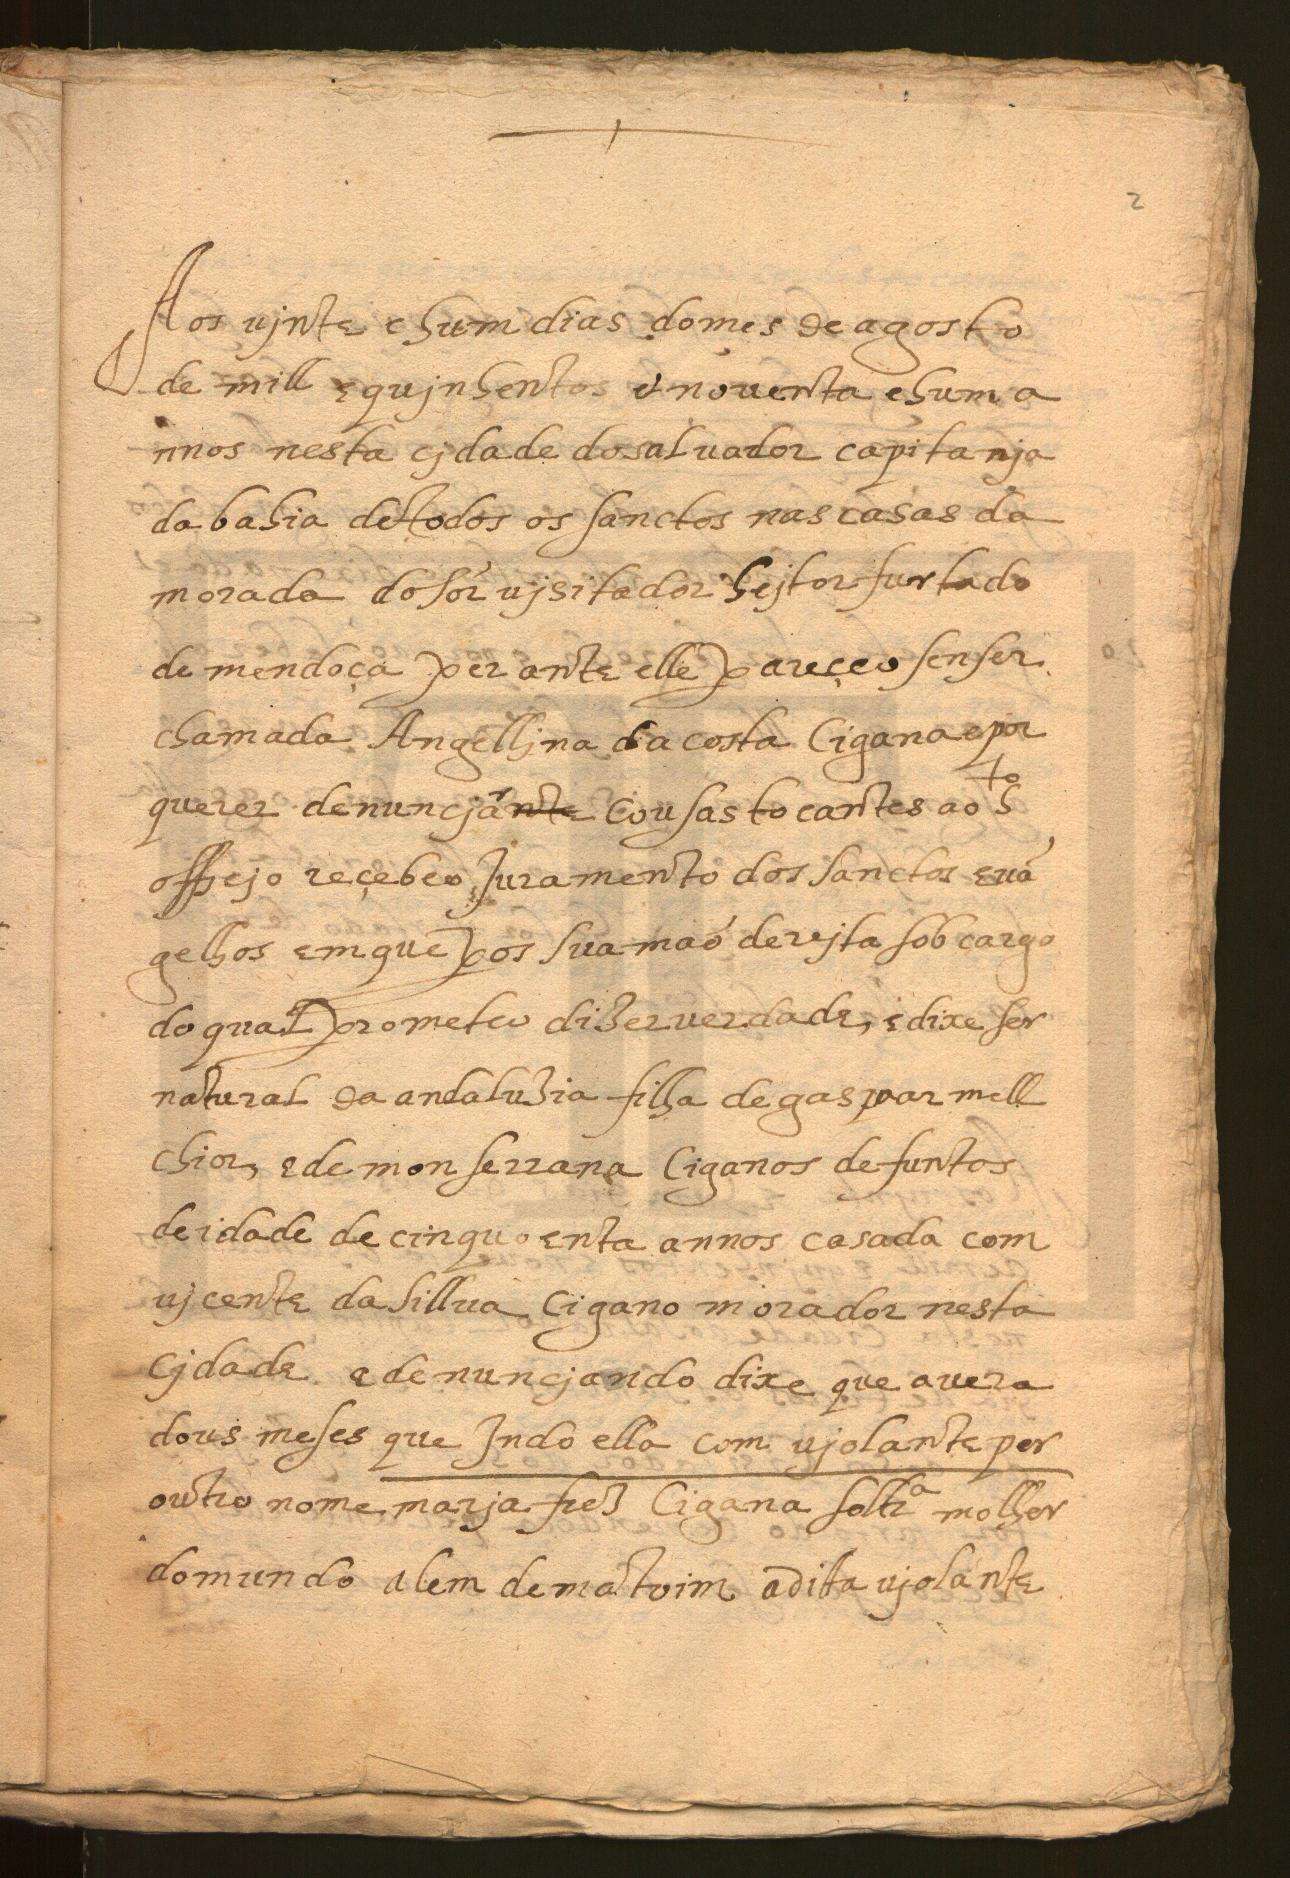 2
Aos ujnte e hum dias do mes de agosto
de mill e qujnhentos e nouenta e hum a
nnos nesta cjdade do saluador capitanja
da bahia de todos os sanctos nas casas da
morada do sõr ujsitador hejtor furtado
de mendoça per ante elle pareçeo sen ser
chamada Angellina da costa Cigana e por
querer denuncjar cousas tocantes ao sto
offiçjo reçebeo Juramento dos sanctos euã
gelhos em que pos sua maõ derejta sob cargo
do qual prometeo dizer uerdade, e dixe ser
natural da andaluzia filha de gaspar mell
chior, e de monserrana Ciganos defuntos
de idade de cinquoenta annos casada com
ujcente da sillua Cigano morador nesta
Cjdade e denuncjando dixe que auera
dous meses que Jndo ella com ujolante per
outro nome marja frz Cigana soltra molher
do mundo alem de matoim a dita ujolante